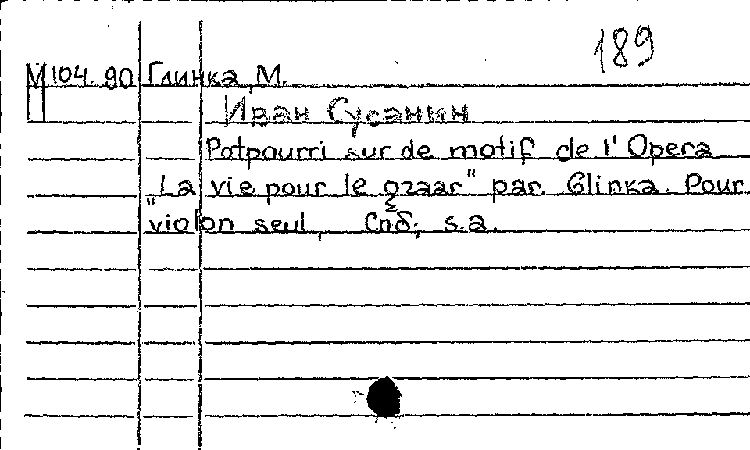 189
М 104.90 Глинка, М.
Иван Сусанин
Potpourri sur de motif de l'Opera
"La vie pour le gzaar" par. Glinka. Pour
violon seul, Спб; s.a.